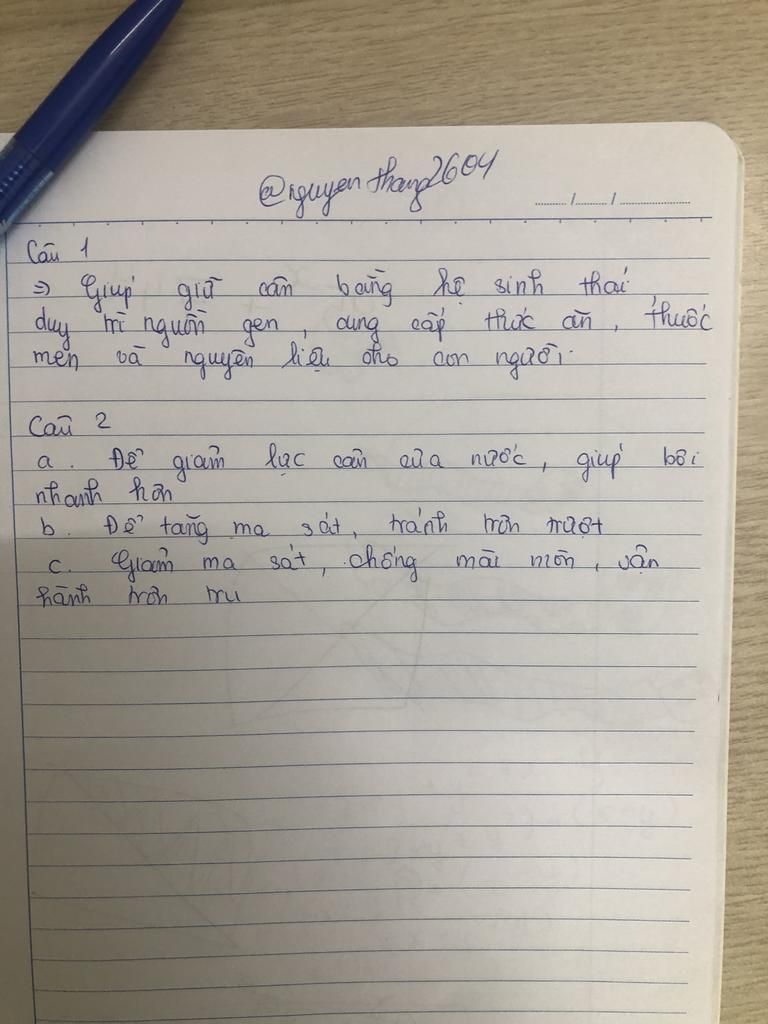 @nguyenthang2604
Câu 1
=> Giúp giữ cân bằng hệ sinh thái
duy trì nguồn gen, cung cấp thức ăn, thuốc
men và nguyên liệu cho con người.
Câu 2
a. Để giảm lực cản của nước, giúp bơi
nhanh hơn
b. Để tăng ma sát, tránh trơn trượt
c. Giảm ma sát, chống mài mòn, vận
hành trơn tru